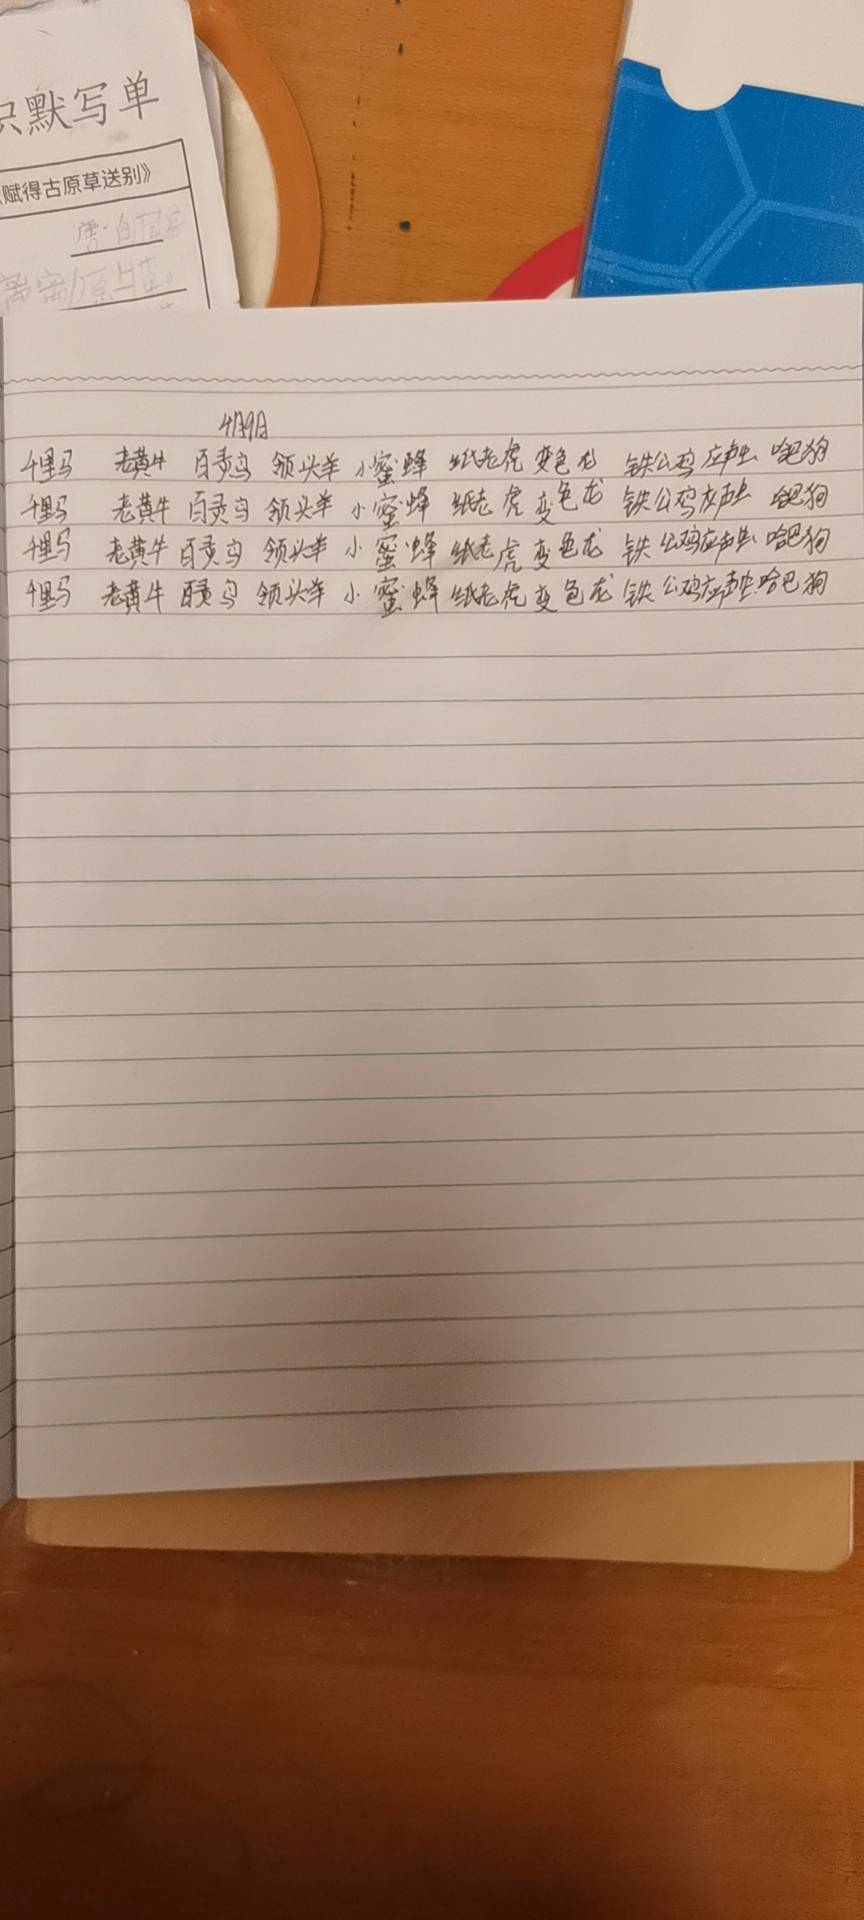 识默写单
赋得古原草送别》
唐·白居易
离离原上草
4月9日
千里马 老黄牛 百灵鸟 领头羊 小蜜蜂 纸老虎 变色龙 铁公鸡 应声虫 哈巴狗
千里马 老黄牛 百灵鸟 领头羊 小蜜蜂 纸老虎 变色龙 铁公鸡 应声虫 哈巴狗
千里马 老黄牛 百灵鸟 领头羊 小蜜蜂 纸老虎 变色龙 铁公鸡 应声虫 哈巴狗
千里马 老黄牛 百灵鸟 领头羊 小蜜蜂 纸老虎 变色龙 铁公鸡 应声虫 哈巴狗